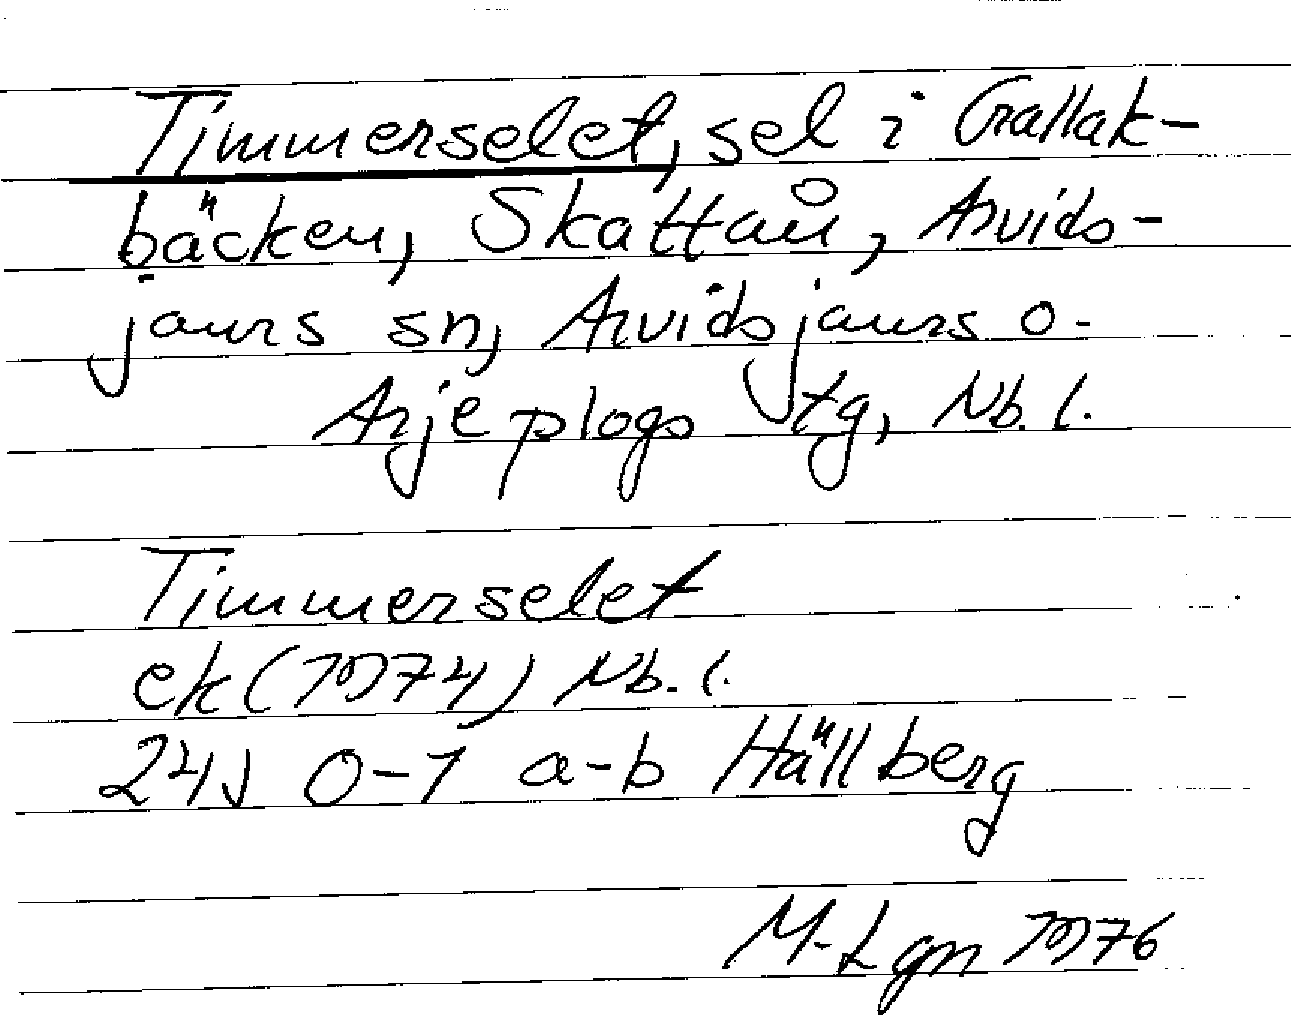 Timmerselet, sel i Grallak-
bäcken, Skattån, Arvids-
jaurs sn, Arvidsjaurs o.
Arjeplogs tg, Nb. l.
Timmerselet
ek (1974) Nb. l.
24J 0-1 a-b Hällberg
M-L gn 1976